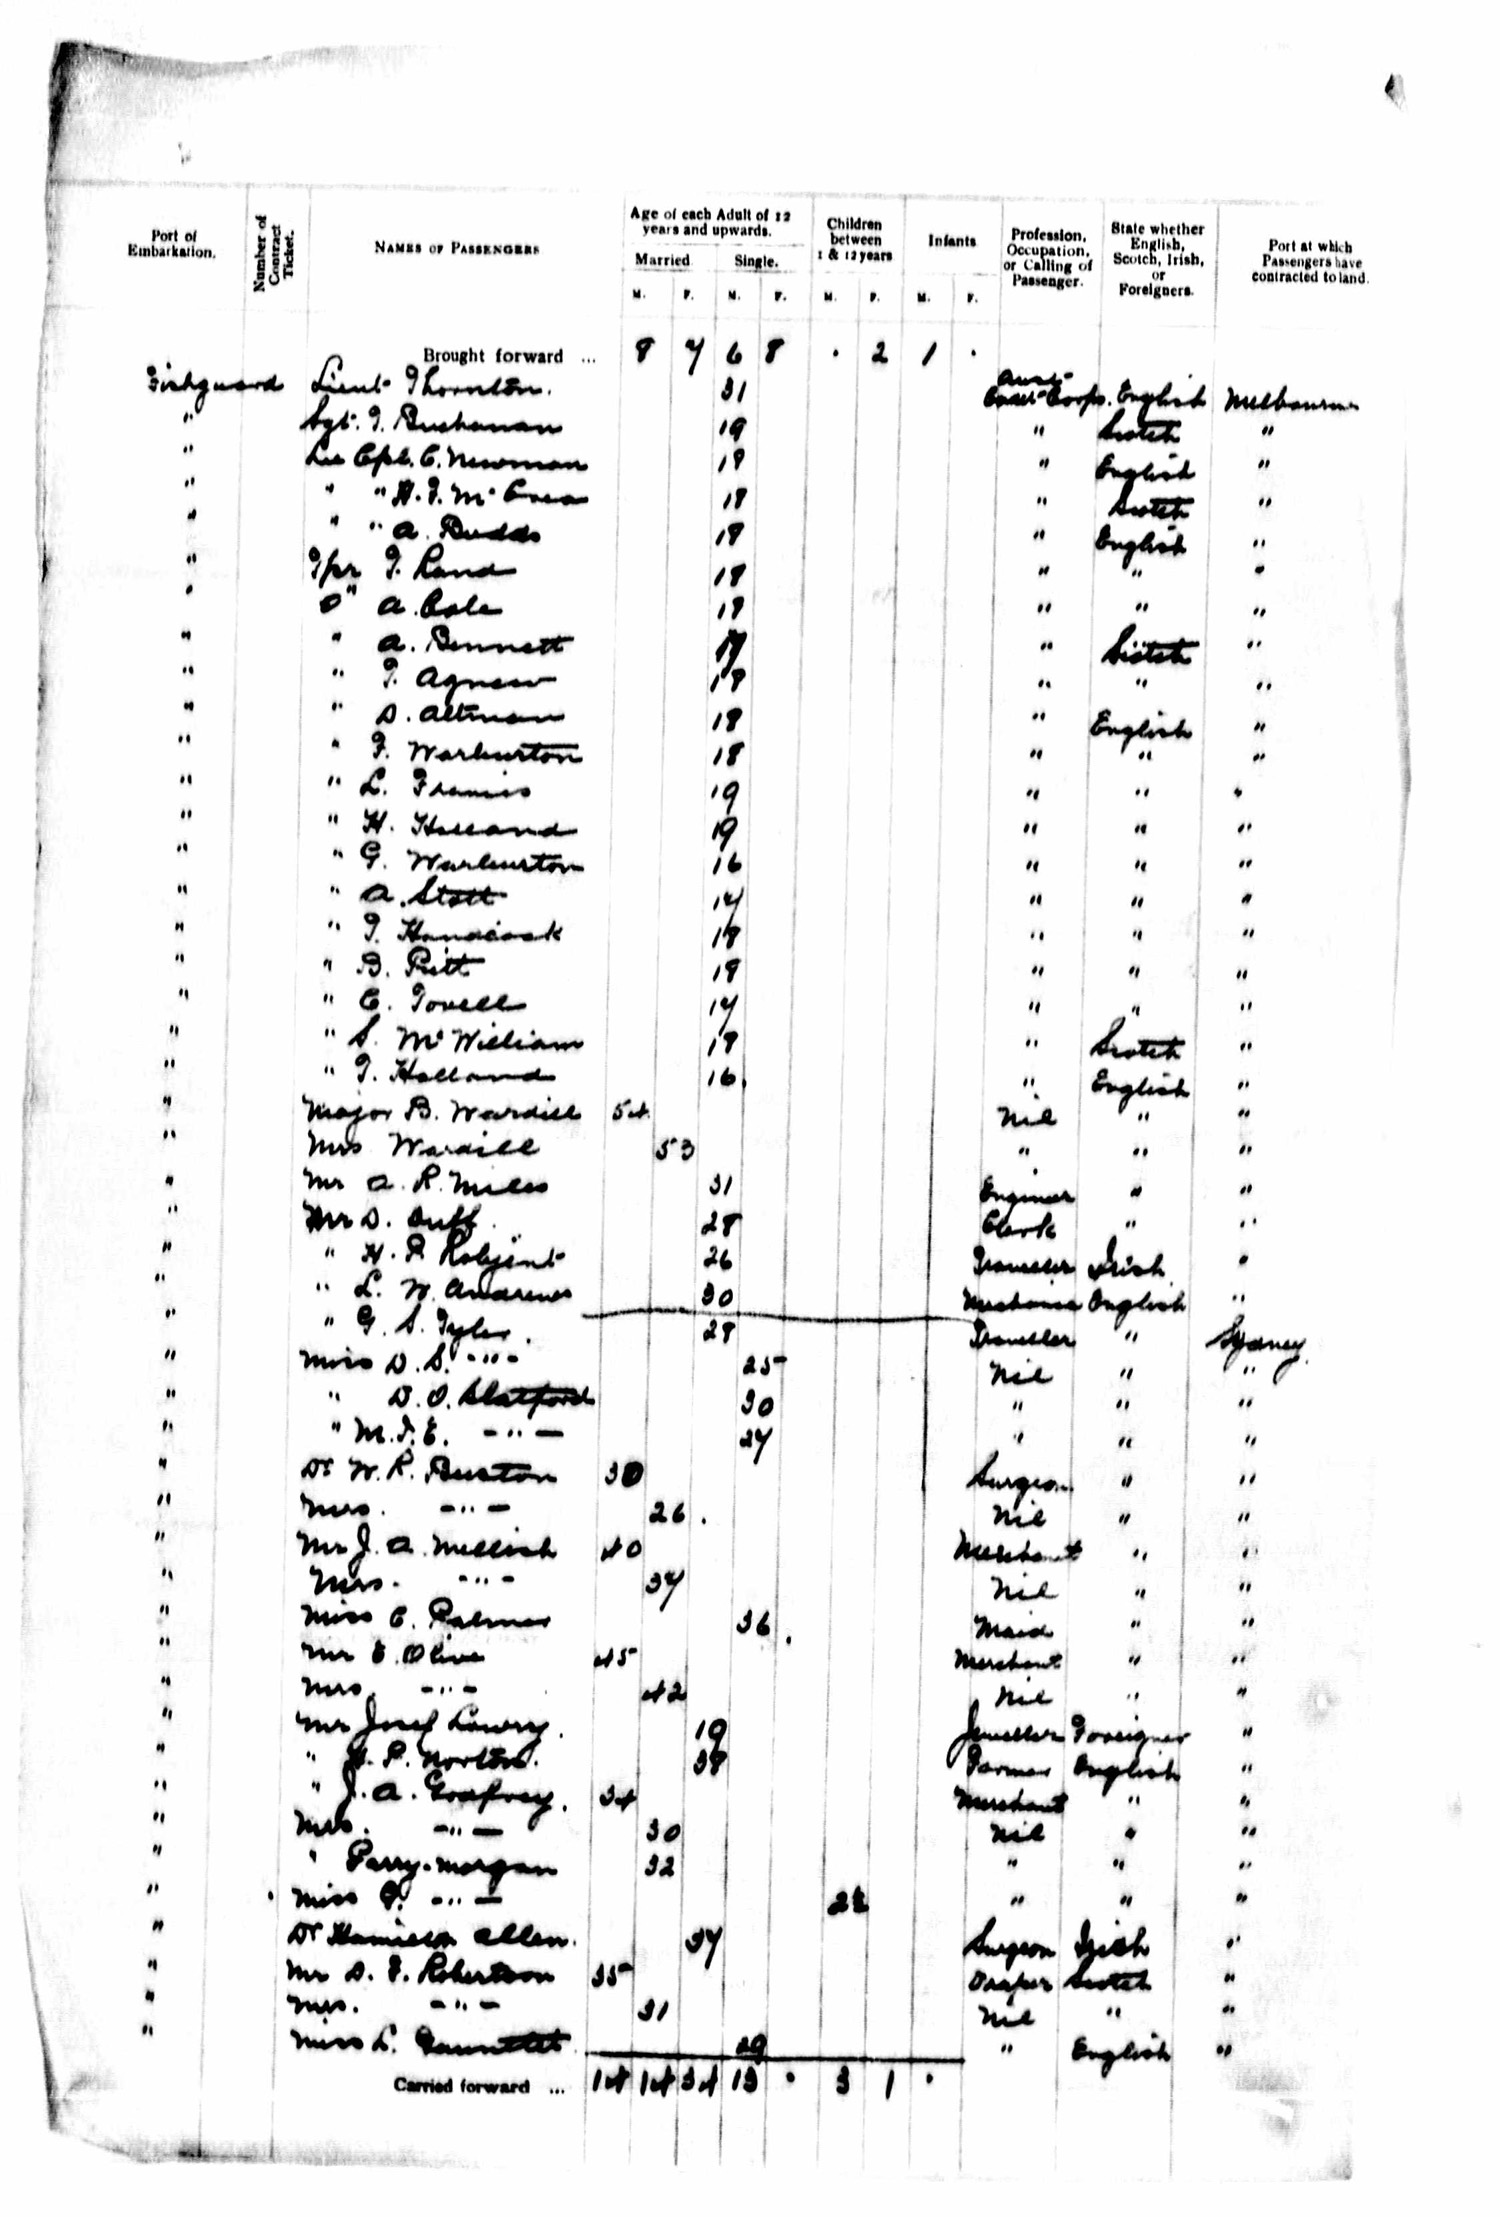 Port of Embarkation. Number of Contract Ticket. NAMES OF PASSENGERS Age of each Adult of 12 years and upwards. Children between 1 & 12 years Infants Profession, Occupation, or Calling of Passenger. State whether English, Scotch, Irish, or Foreigners. Port at which Passengers have contracted to land.
Married Single.
M. F. M. F. M. F. M. F.
Brought forward ... 8 7 6 8 . 2 1 .
Fishguard Lieut Thornton. 31 Aust Cadet Corps. English Melbourne
" Sgt. T. Buchanan 19 " Scotch "
" Lce Cpl. C. Newman 18 " English "
" " " H. T. Mc Crea 18 " Scotch "
" " " A. Dodds 18 " English "
" Tpr T. Rand 18 " " "
" " A. Cole 18 " " "
" " A. Bennett 17 " Scotch "
" " T. Agnew 18 " " "
" " D. Altman 18 " English "
" " F. Warburton 18 " " "
" " L. Francis 19 " " "
" " H. Holland 19 " " "
" " G. Warburton 16 " " "
" " A. Stott 17 " " "
" " T. Handcock 18 " " "
" " B. Pitt 18 " " "
" " C. Tovell 17 " " "
" " S. McWilliam 18 " Scotch "
" " T. Holland 16. " English "
" Major B. Wardill 54. Nil " "
" Mrs Wardill 53 " " "
" Mr A. R. Miles 31 Engineer " "
" Mr D. Duff. 28 Clerk " "
" " H. P. Robjent 26 Traveller Irish "
" " L. W. Andrews 30 Mechanic English "
" " G. S. Tyler. 28 Traveller " Sydney
" Miss D. S. -"- 25 Nil " "
" " D. O. Slatford 30 " " "
" " M. I. E. -"- 27 " " "
" Dr W. R. Buxton 30 Surgeon " "
" Mrs. -"- 26. Nil " "
" Mr J. A. Mellish 40 Merchant " "
" Mrs. -"- 37 Nil " "
" Miss C. Palmer 36. Maid " "
" Mr E. Olive 45 Merchant " "
" Mrs. -"- 42 Nil " "
" Mr Josef Lowry. 19 Jeweller Foreigner "
" " H. P. Norton. 38 Farmer English "
" " J. A. Godfrey. 34 Merchant " "
" Mrs. -"- 30 Nil " "
" " Parry-Morgan 32 " " "
" Miss G. -"- 2½ " " "
" Dr Hamilton Allen. 37 Surgeon Irish "
" Mr D. F. Robertson 35 Draper Scotch "
" Mrs. -"- 31 Nil " "
" Miss L. Gauntlet 29 " English "
Carried forward ... 14 14 34 13 . 3 1 .